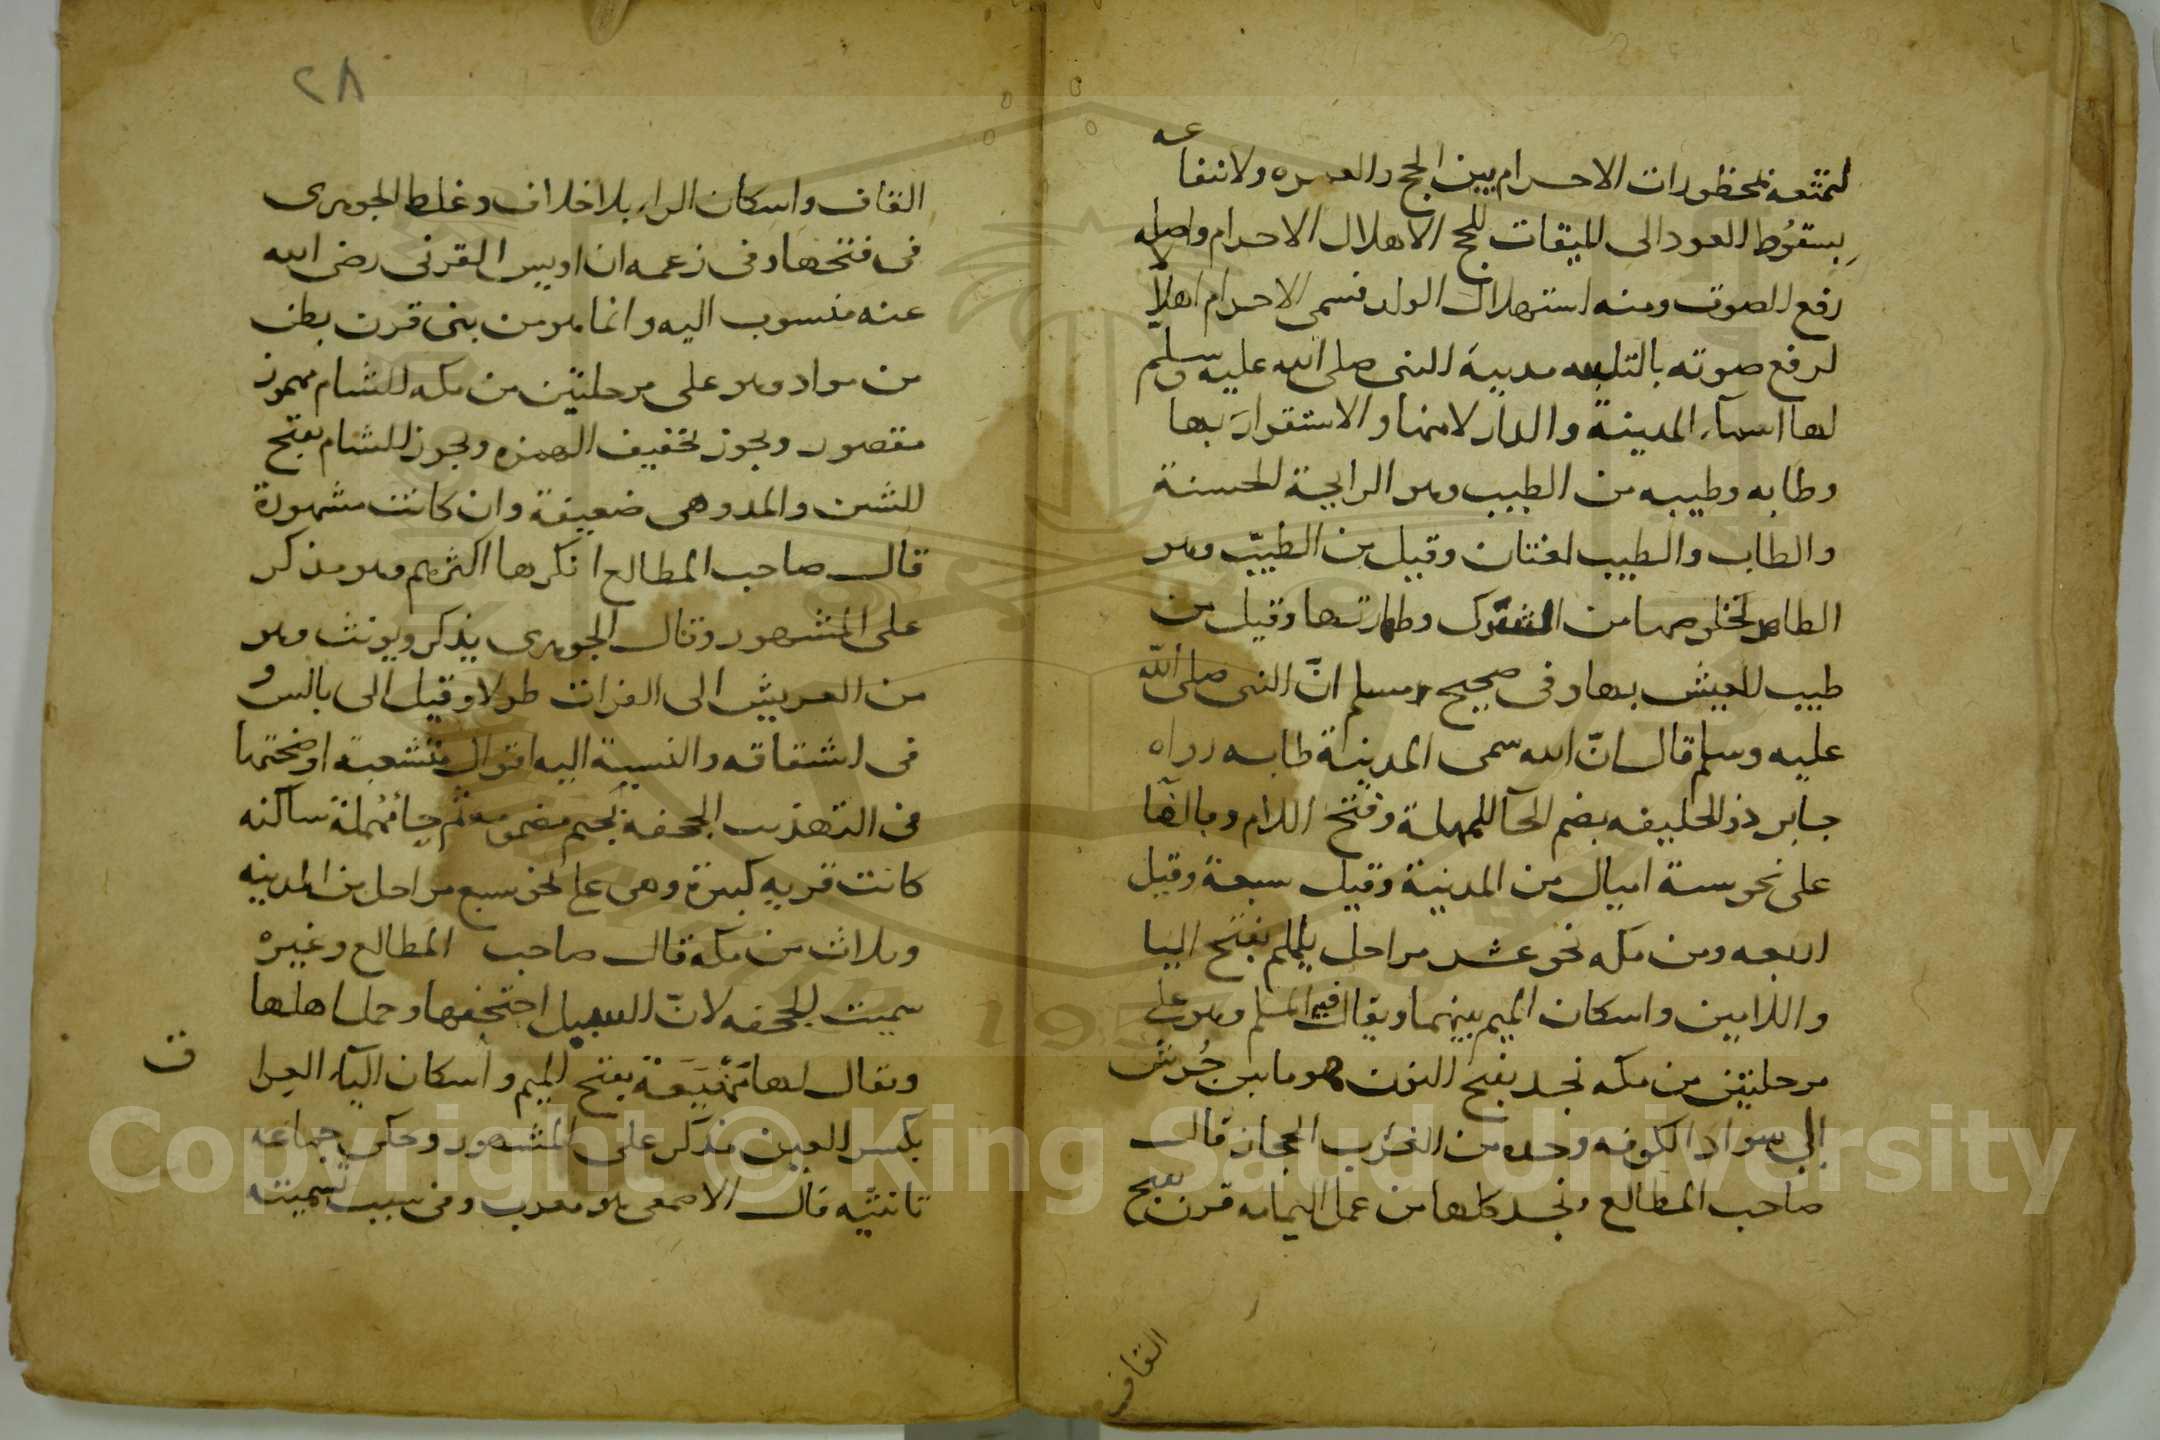 لتمتعه بمحظورات الاحرام بين الحج والعمره ولانتفاعه
بسقوُط العود الى الميقات للحج الاهلال الاحرام واصله
رفع الصوت ومنه استهلال الولد فسمى الاحرام اهلالا
لرفع صوته بالتلبيه مدينة النبى صلى الله عليه وسلم
لها اسمآء المدينة والدار لامنها والاستقرار بها
وطابه وطيبه من الطيب وهو الرايحة الحسنة
والطاب والطيب لغتان وقيل من الطيّب وهو
الطاهر لخلوصها من الشرك وطهارتها وقيل من
طيب العيش بها وفى صحيح مسلم انّ النبى صلى الله
عليه وسلم قال انّ الله سمى المدينة طابه رواه
جابر ذو الحليفه بضم الحآ المهملة وفتح اللام وبالفآ
على نحو ستة اميال من المدينة وقيل سبعة وقيل
اربعه ومن مكه نحو عشر مراحل يلملم بفتح اليا
واللامين واسكان الميم بينهما ويقال فيه الملم وهو على
مرحلتين من مكه نجد بفتح النون هو ما بين جُرش
الى سواد الكوفه وحده من الغرب الحجاز قال
صاحب المطالع ونجد كلها من عمل اليمامه قرن بفتح
القاف
٢٨
القاف واسكان الراء بلا خلاف وغلط الجوهرى
فى فتحها وفى زعمه ان اويس القرنى رضى الله
عنه منسوب اليه وانما هو من بنى قرن بطن
من مراد وهو على مرحلتين من مكه الشام مهموز
مقصور ويجوز تخفيف الهمزه ويجوز الشام بفتح
الشين والمد وهى ضعيفة وان كانت مشهورة
قال صاحب المطالع انكرها اكثرهم وهو مذكر
على المشهور وقال الجوهرى يذكر ويونث وهو
من العريش الى الفرات طولا وقيل الى بالس و
فى اشتقاقه والنسبة اليه اقوال متشعبة اوضحتها
فى التهذيب الجحفة بجيم مضمومة ثم حاء مهملة ساكنه
كانت قريه كبيرة وهى على نحو سبع مراحل من المدينه
وثلاث من مكه قال صاحب المطالع وغيره
سميت الجحفه لانّ السيل اجتحفها وحمل اهلها
ويقال لها مَهْيَعَة بفتح الميم واسكان اليآء العرا
ق
بكسر العين مذكر على المشهور وحكى جماعه
تانثيه قال الاصمعى هو معرب وفى سبب تسميته
Copyright © King Saud University